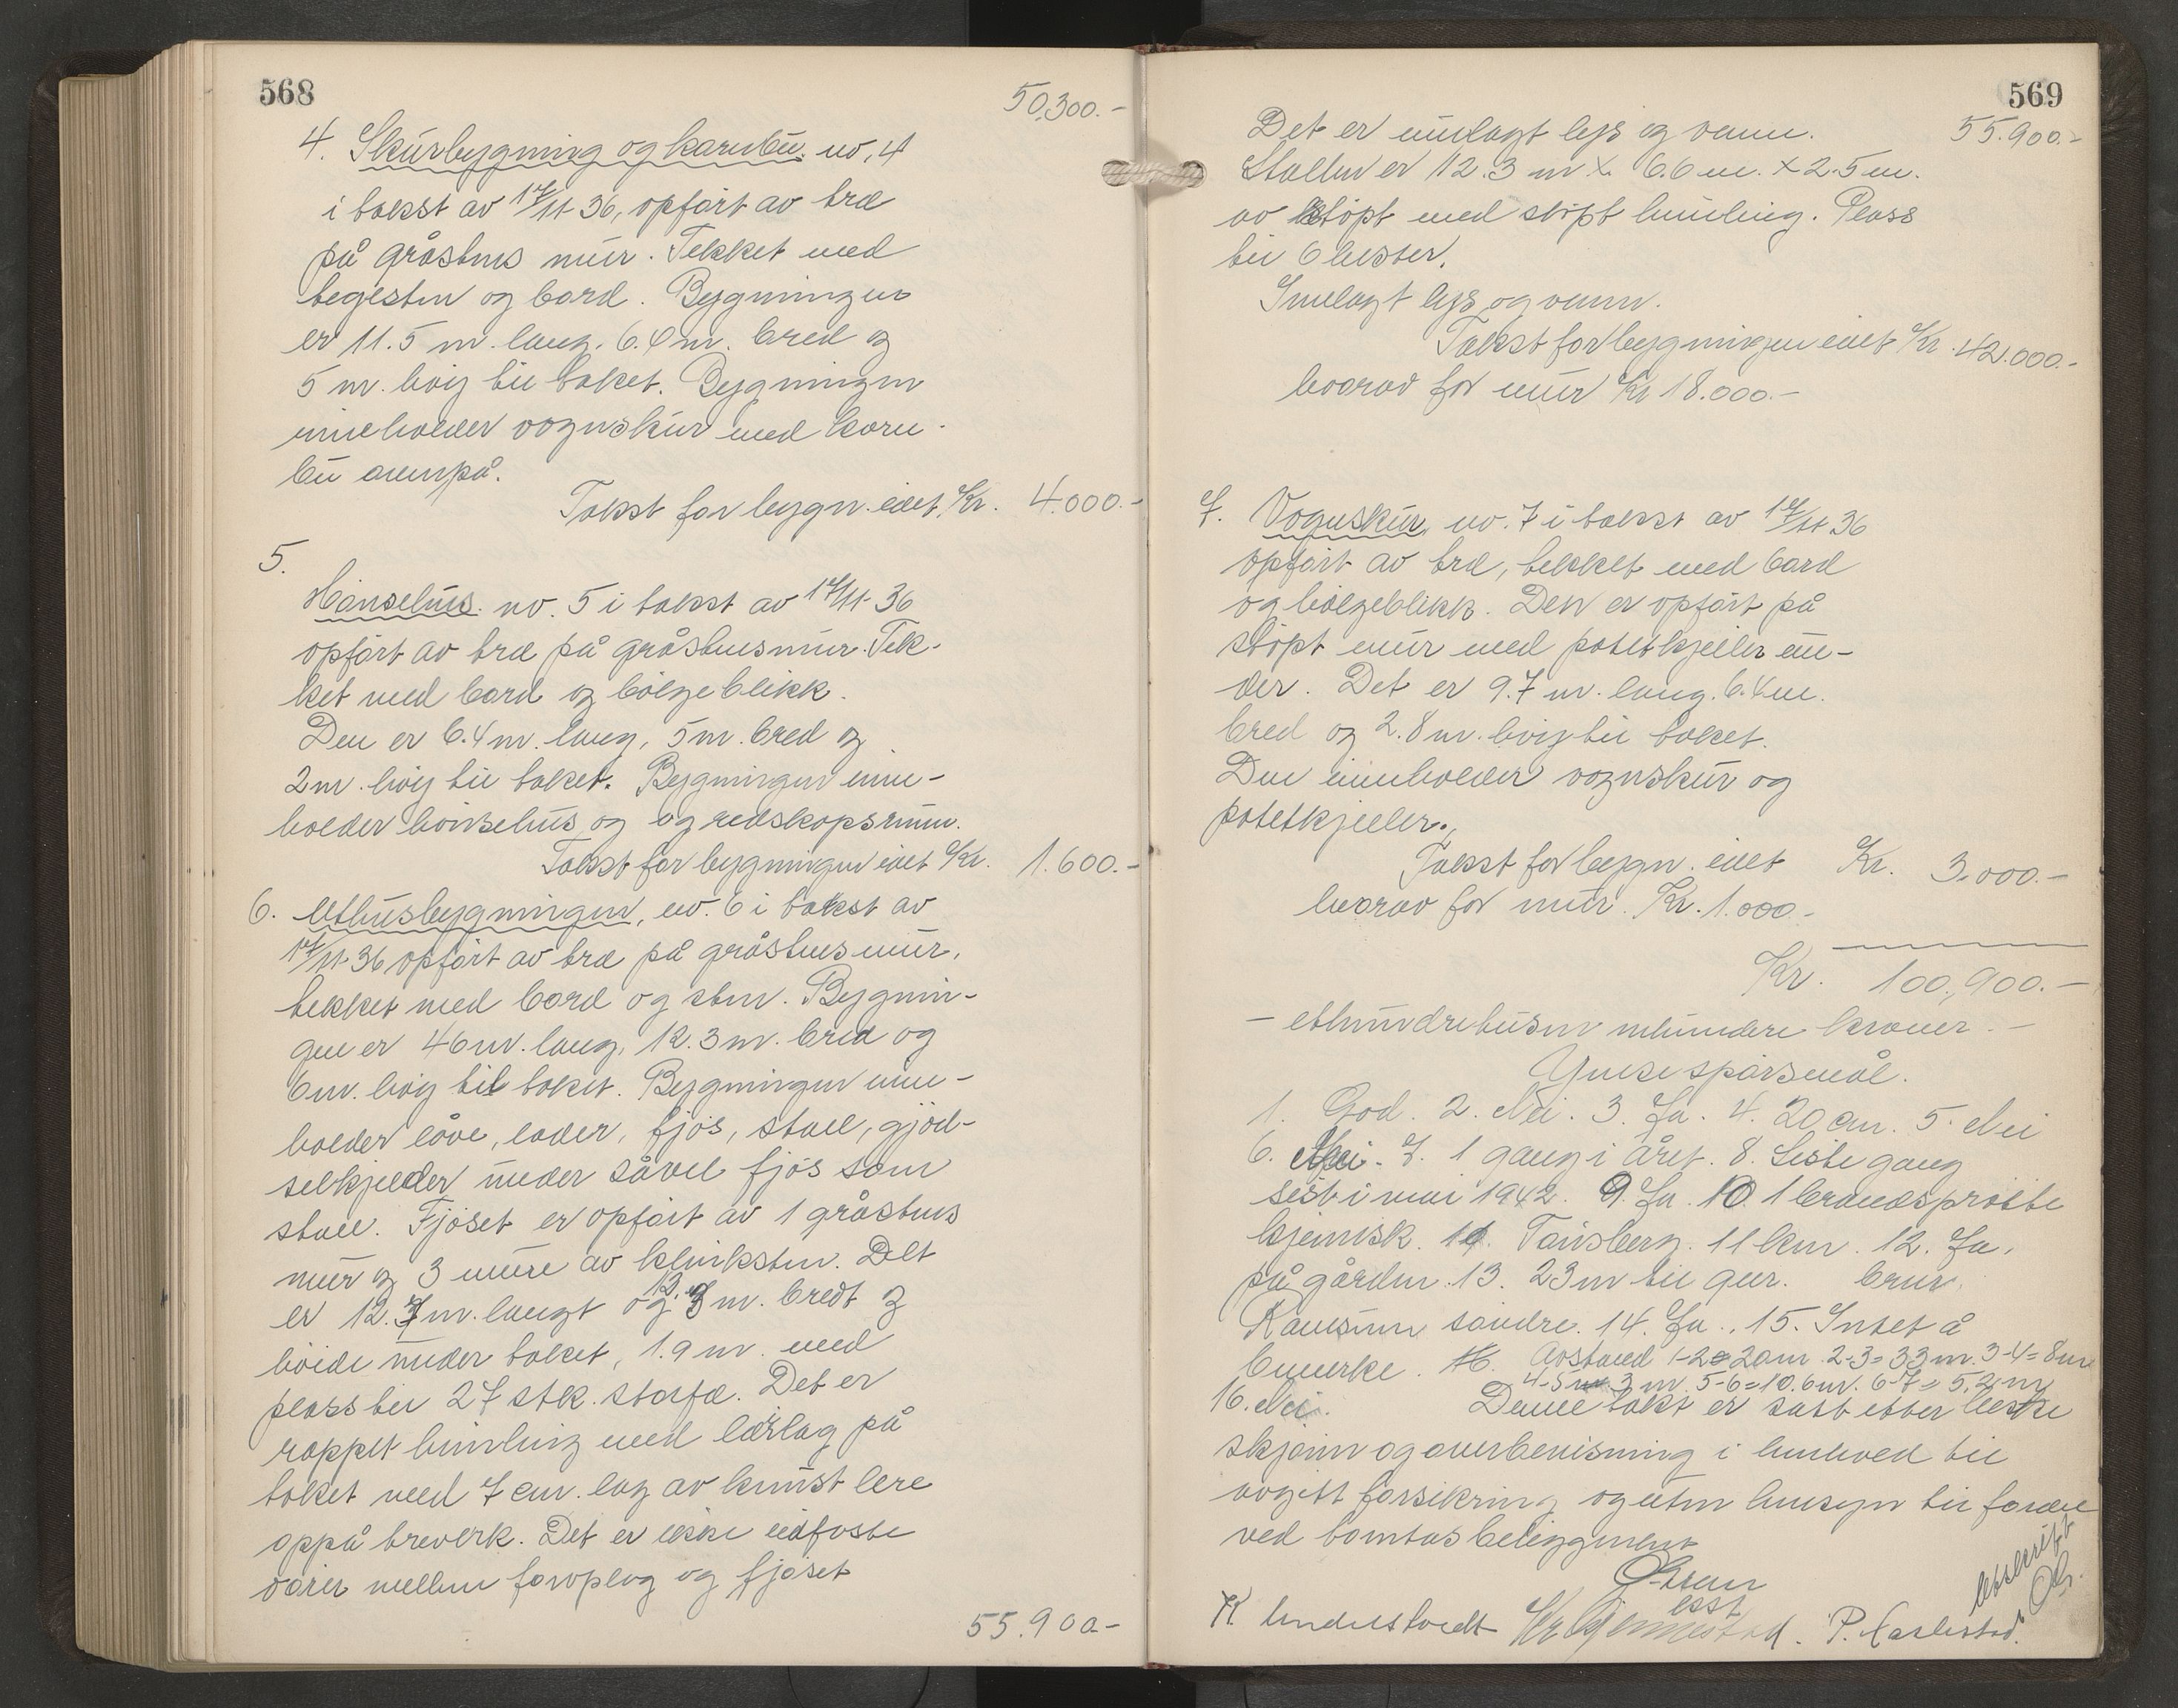 568
50.300.-
4. Skurbygning og kornbu. no. 4
i takst av 17/11-36, opført av tre
på gråstens mur. Tekket med
teglsten og bord. Bygningen
er 11.5 m. lang. 6.4 m. bred og
5 m. høig til taket. Bygningen
inneholder vognskur med korn-
bu ovenpå.
Takst for bygn. eiet. Kr. 4.000.-
5.
Hønsehus. no. 5 i takst av 17/11-36
opført av tre på gråstensmur. Tek-
ket med bord og bølgeblikk.
Den er 6.4 m. lang, 5 m. bred og
2 m. høig til taket. Bygningen inne-
holder hønsehus og og redskapsrum.
Takst for bygningen eiet Kr. 1.600.-
6. Uthusbygningen, no. 6 i takst av
17/11-36 opført av tre på gråstens mur,
tekket med bord og sten. Bygnin-
gen er 46 m. lang, 12.3 m. bred og
6 m. høig til taket. Bygningen inne-
holder låve, lader, fjøs, stall, gjød-
selkjelder under såvel fjøs som
stall. Fjøset er opført av 1 gråstens
mur og 3 mure av klinksten. Det
er 12.7 m. langt og 12.3 m. bredt og
høide under taket, 1.9 m. med
plass til 27 stk. storfe. Det er
rappet himling med lerlag på
taket med 7 cm. lag av kunst lere
oppå treverk. Det er ikke ildfaste
dører mellem foroplag og fjøset
55.900-
569
Det er innlagt lys og vann. 55.900.-
Stallen er 12.3 m x 6.6 m. x 2.5 m.
av støpt med støpt himling. Plass
til 6 hester.
Innlagt lys og vann.
Takst for bygningen eiet Kr. 42.000.-
hvorav for mur Kr 18.000.-
7. Vognskur, no. 7 i takst av 17/11 36
opført av tre, tekket med bord
og bølgeblikk. Den er opført på
støpt mur med potetkjeller un-
der. Det er 9.7 m. lang. 6.4 m.
bred og 2.8 m. høig til taket.
Den inneholder vognskur og
potetkjeller.
Takst for bygn. eiet Kr. 3.000.-
hvorav for mur. Kr. 1.000.-
Kr. 100,900.-
- etthundretusen nihundre kroner. -
Ymse spørsmål.
1. God. 2. Nei. 3. Ja. 4. 20 cm. 5. Nei
6. Nei. 7. 1 gang i året. 8. Siste gang
sist i mai 1942. 9. Ja. 10. 1 brandsprøite
kjemisk. 11. Tønsberg. 11 km. 12. Ja,
på gården. 13. 23 m til gnr. brnr.
Ramsum søndre. 14. Ja. 15. Intet å
bemerke. Avstand 1-2=20 m. 2-3=33 m. 3-4=8 m
4-5 3 m. 5-6=10.6 m. 6-7=5.2 m
16. Nei. Denne takst er satt etter beste
skjønn og overbevisning i henhold til
avgitt forsikring og uten hensyn til fordel
ved tomtas beliggenhet
P. Karlestad.